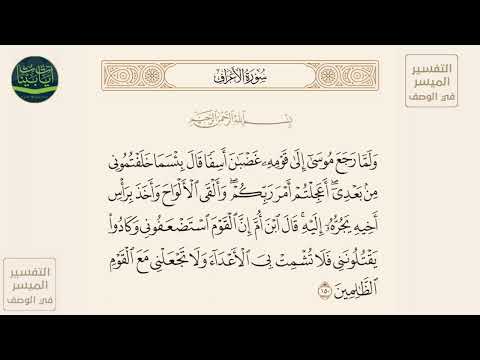 سُورَةُ الأَعْرَافِ
التفسير
الميسر
في الوصف
بِسْمِ اللَّهِ الرَّحْمَٰنِ الرَّحِيمِ
وَلَمَّا رَجَعَ مُوسَىٰٓ إِلَىٰ قَوْمِهِۦ غَضْبَٰنَ أَسِفًا قَالَ بِئْسَمَا خَلَفْتُمُونِى
مِنۢ بَعْدِىٓ ۖ أَعَجِلْتُمْ أَمْرَ رَبِّكُمْ ۖ وَأَلْقَى ٱلْأَلْوَاحَ وَأَخَذَ بِرَأْسِ
أَخِيهِ يَجُرُّهُۥٓ إِلَيْهِ ۚ قَالَ ٱبْنَ أُمَّ إِنَّ ٱلْقَوْمَ ٱسْتَضْعَفُونِى وَكَادُوا۟
يَقْتُلُونَنِى فَلَا تُشْمِتْ بِىَ ٱلْأَعْدَآءَ وَلَا تَجْعَلْنِى مَعَ ٱلْقَوْمِ
ٱلظَّٰلِمِينَ ١٥٠
التفسير
الميسر
في الوصف